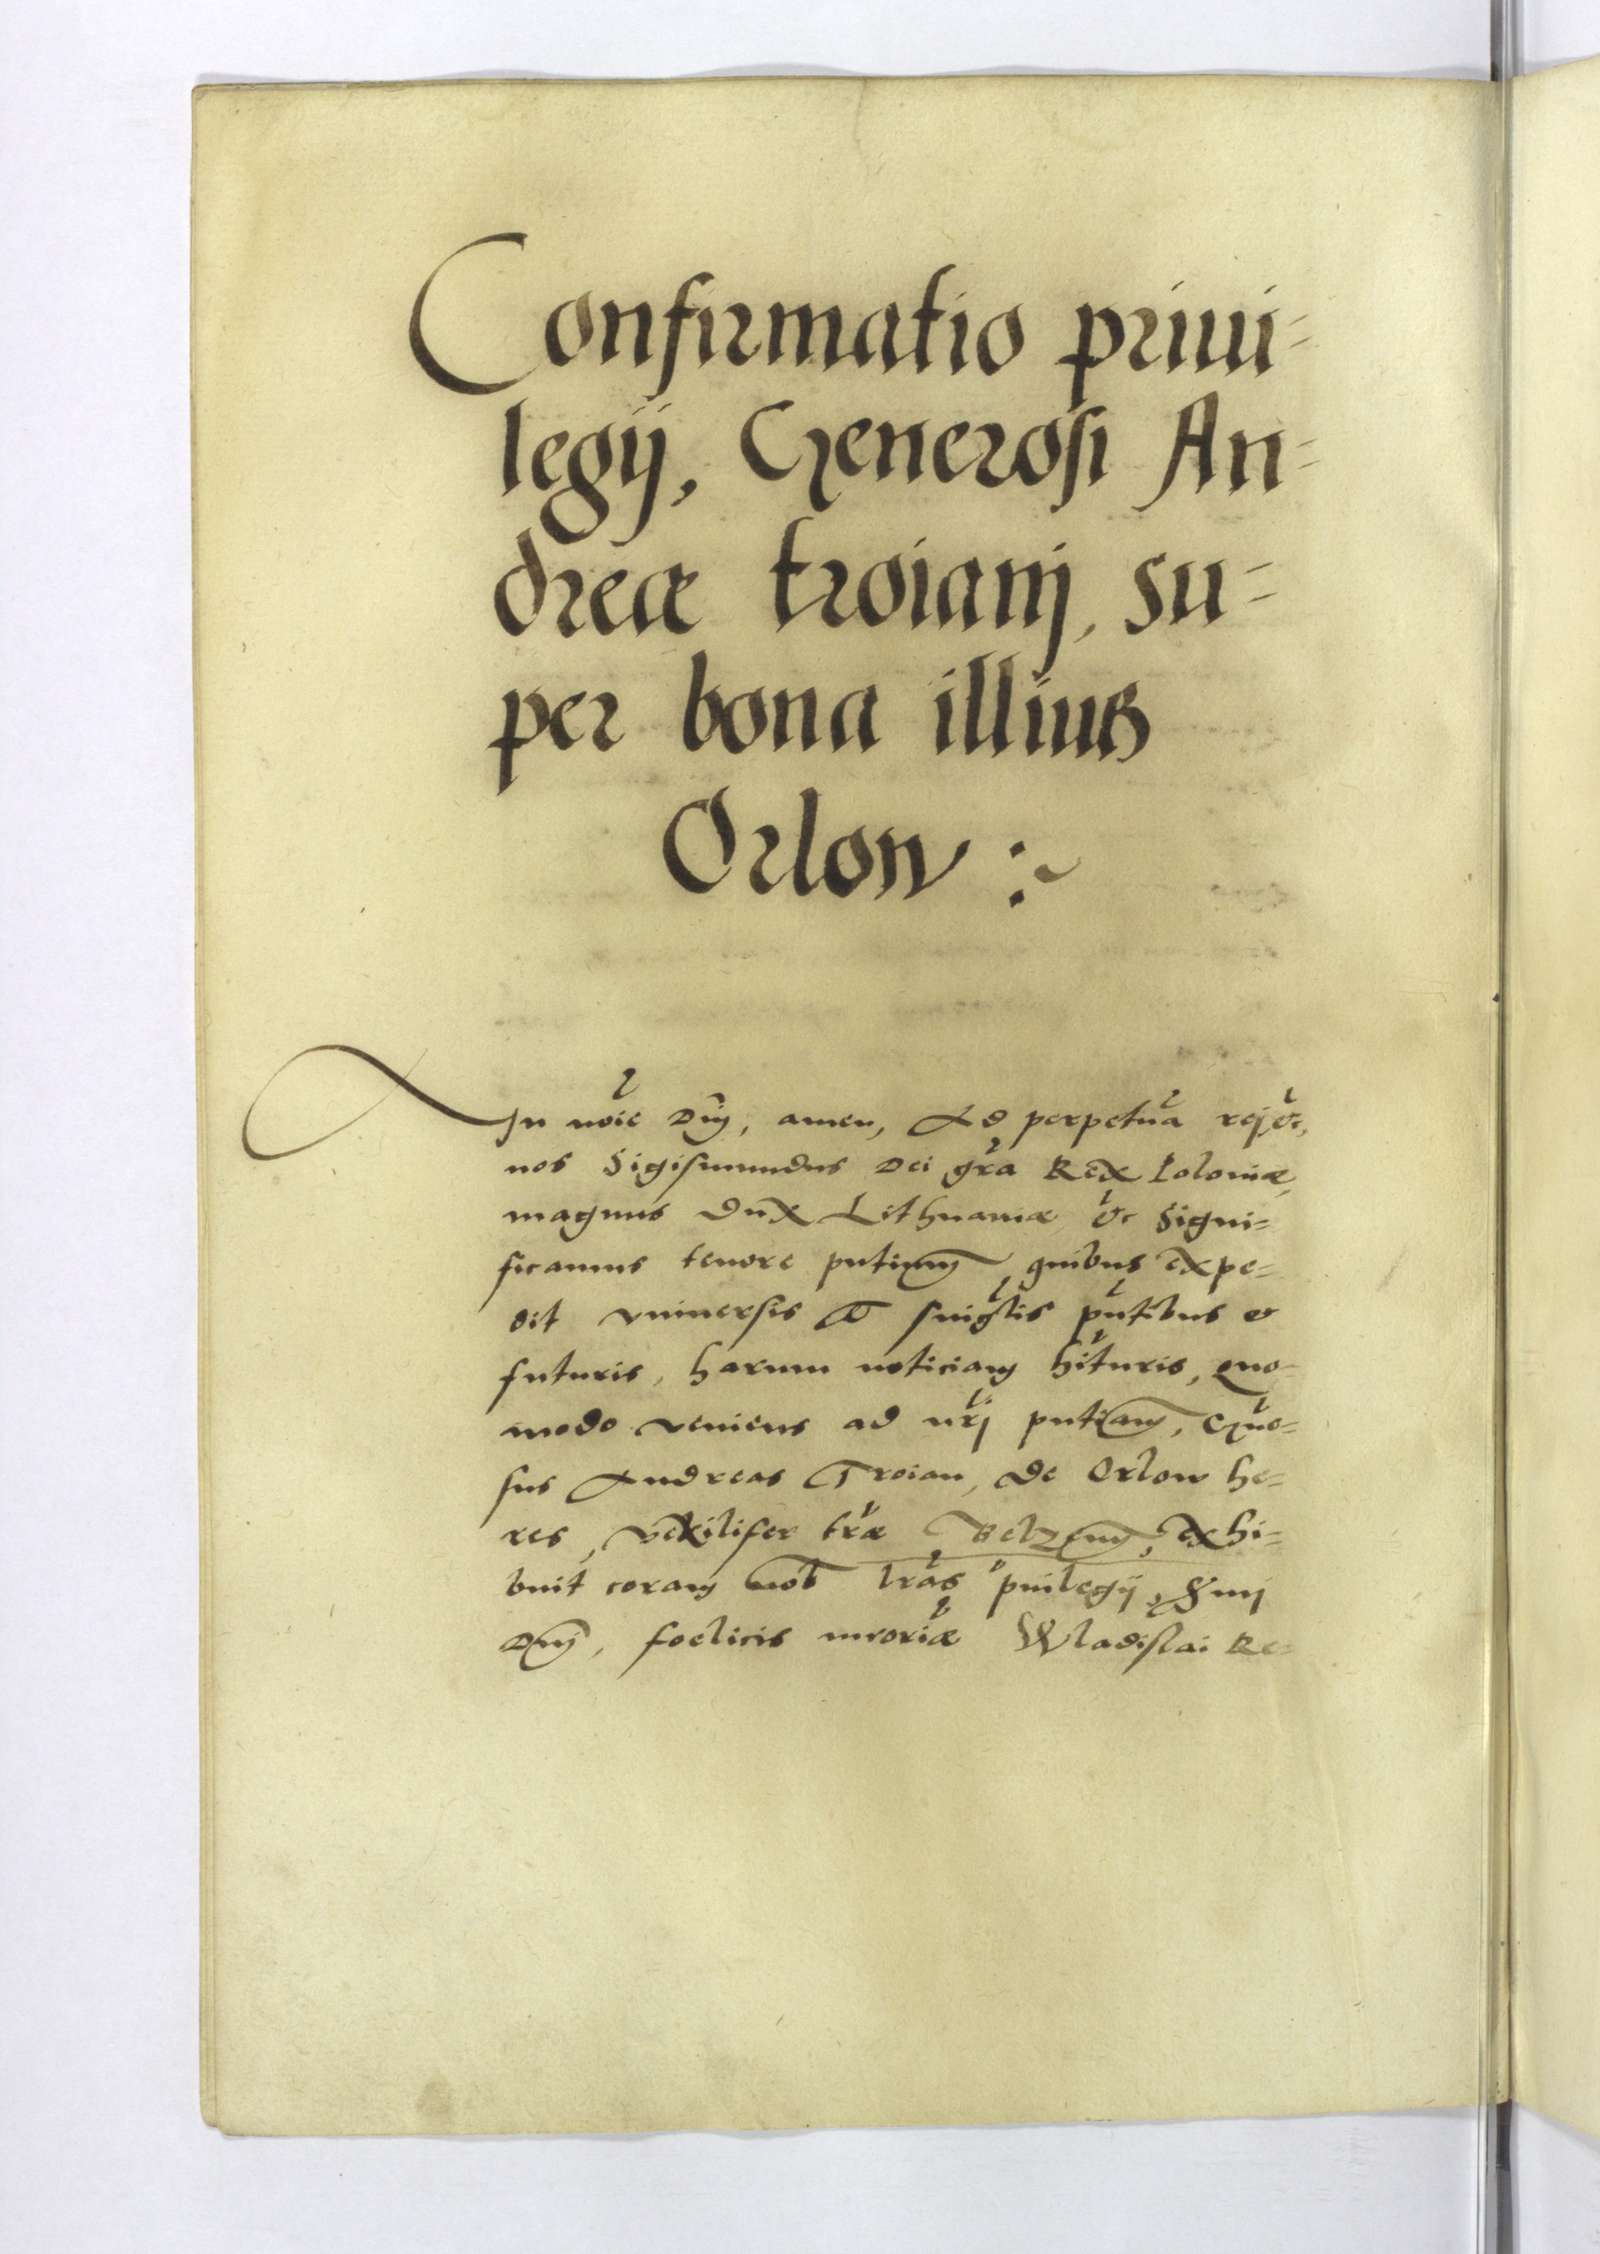 Confirmatio priui-
legij, Generosi An-
dreæ troianj, su-
per bona illius
Orlow :~
In noi͞e Dnj, amen, Ad perpetua͞ rej &c,
nos Sigismundus Dei gra͞ Rex Poloniæ,
magnus dux Lithuaniæ &c Signi-
ficamus tenore pntium, quibus expe-
dit vniuersis et singlis pntibus &
futuris, harum noticiam hituris, quo-
modo veniens ad nrj pntiam, Gno-
sus Andreas Troian, de Orlow he-
res, vexilifer træ Belzen, exhi-
buit coram nob lras puilegij, Smj
Dnj, foelicis mroriæ Wladislai Re-